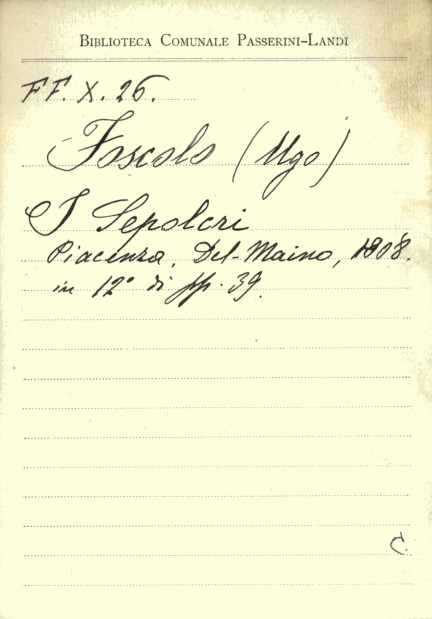 BIBLIOTECA COMUNALE PASSERINI-LANDI
FF. X. 26.
Foscolo (Ugo)
I Sepolcri
Piacenza, Del-Maino, 1808.
in 12° di pp. 39.
C.